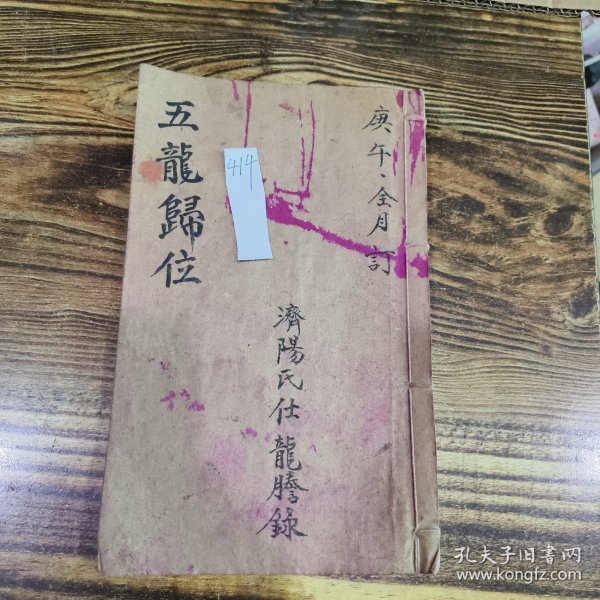 庚午、全月訂
五龍歸位
濟陽氏仕龍謄錄
414
孔夫子旧书网
www.kongfz.com